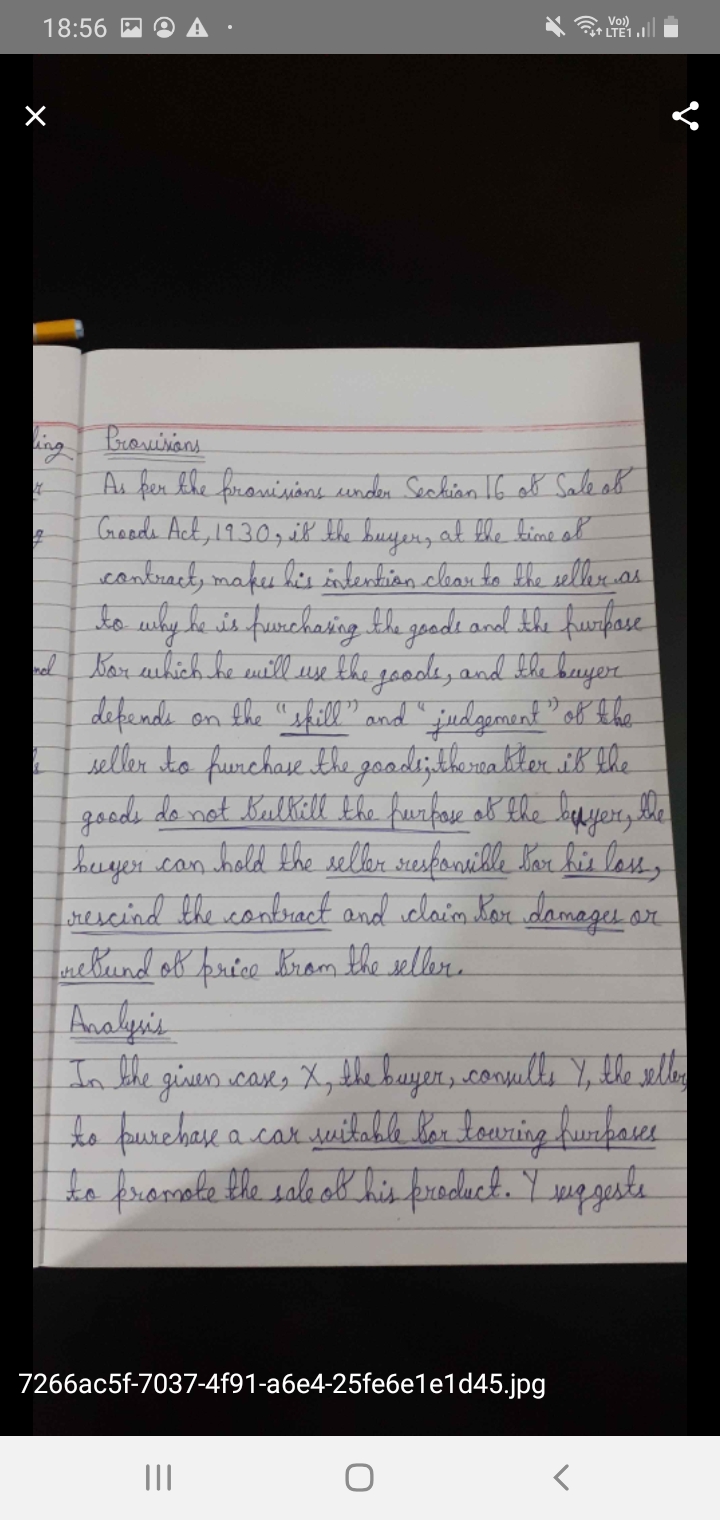 18:56
Vo))
LTE1
ling
Provisions
As per the provisions under Section 16 of Sale of
Goods Act, 1930, if the buyer, at the time of
contract, makes his intention clear to the seller as
to why he is purchasing the goods and the purpose
for which he will use the goods, and the buyer
depends on the "skill" and "judgement" of the
seller to purchase the goods; thereafter if the
goods do not fulfill the purpose of the buyer, the
buyer can hold the seller responsible for his loss,
rescind the contract and claim for damages or
refund of price from the seller.
Analysis
In the given case, X, the buyer, consults Y, the seller,
to purchase a car suitable for touring purposes
to promote the sale of his product. Y suggests
7266ac5f-7037-4f91-a6e4-25fe6e1e1d45.jpg